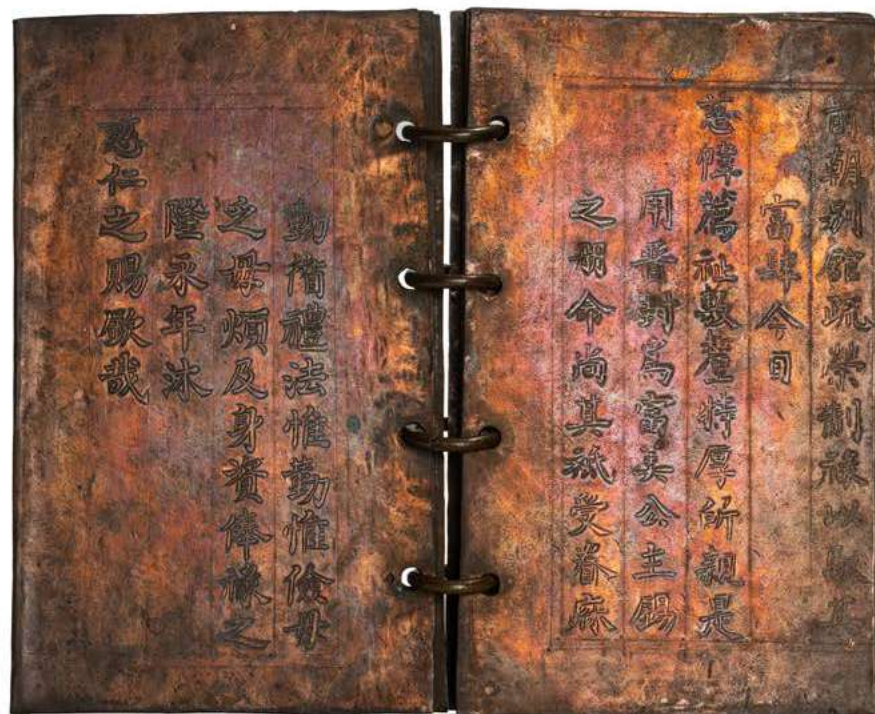 朝別館疏榮制祿以馭其
富肆今日
慈幃篤祉敷釐特厚所親是
用晋封爲富美公主錫
之冊命尚其祗受眷庥
動循禮法惟勤惟儉毋
之毋煩及身資俸祿之
隆永年沐
慈仁之賜欽哉